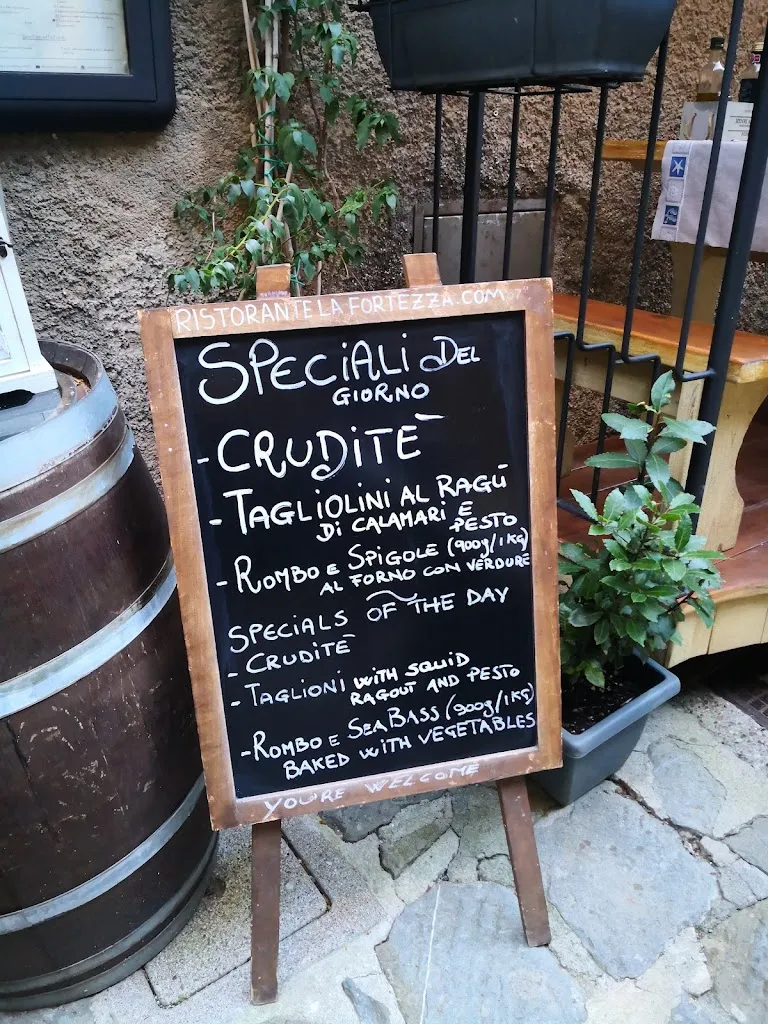 RISTORANTE LA FORTEZZA.COM
SPECIALI DEL
GIORNO
- CRUDITÈ
- TAGLIOLINI AL RAGÙ
DI CALAMARI E
PESTO
- ROMBO E SPIGOLE (900g/1KG)
AL FORNO CON VERDURE
SPECIALS OF THE DAY
- CRUDITÈ
- TAGLIONI WITH SQUID
RAGOUT AND PESTO
- ROMBO E SEA BASS (900g/1KG)
BAKED WITH VEGETABLES
YOU'RE WELCOME